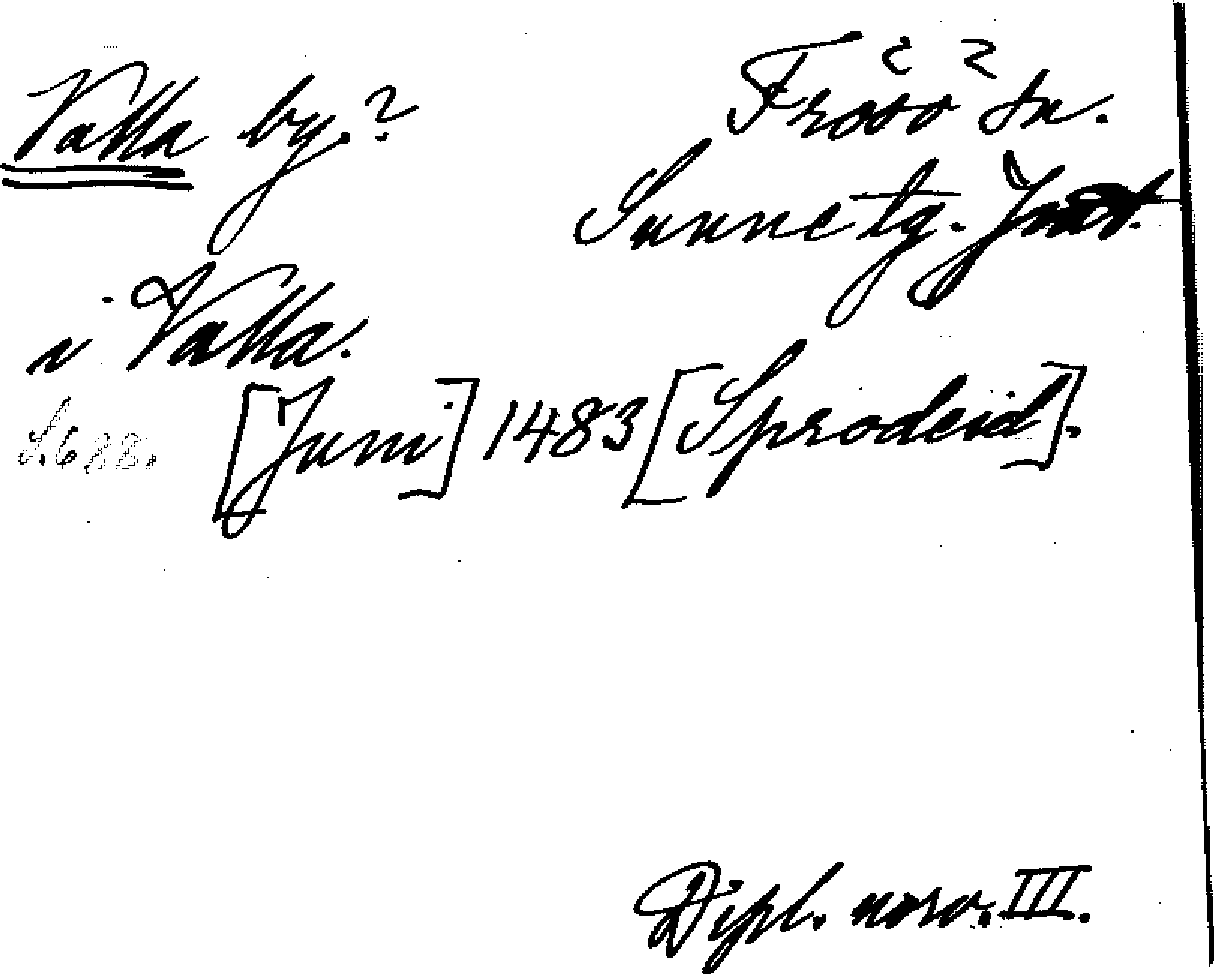 Valla by.? Frösö sn.
Sunne tg. Jmt.
i Valla.
S. 688. [Juni] 1483 [Sprodeid].
Dipl. norv. III.